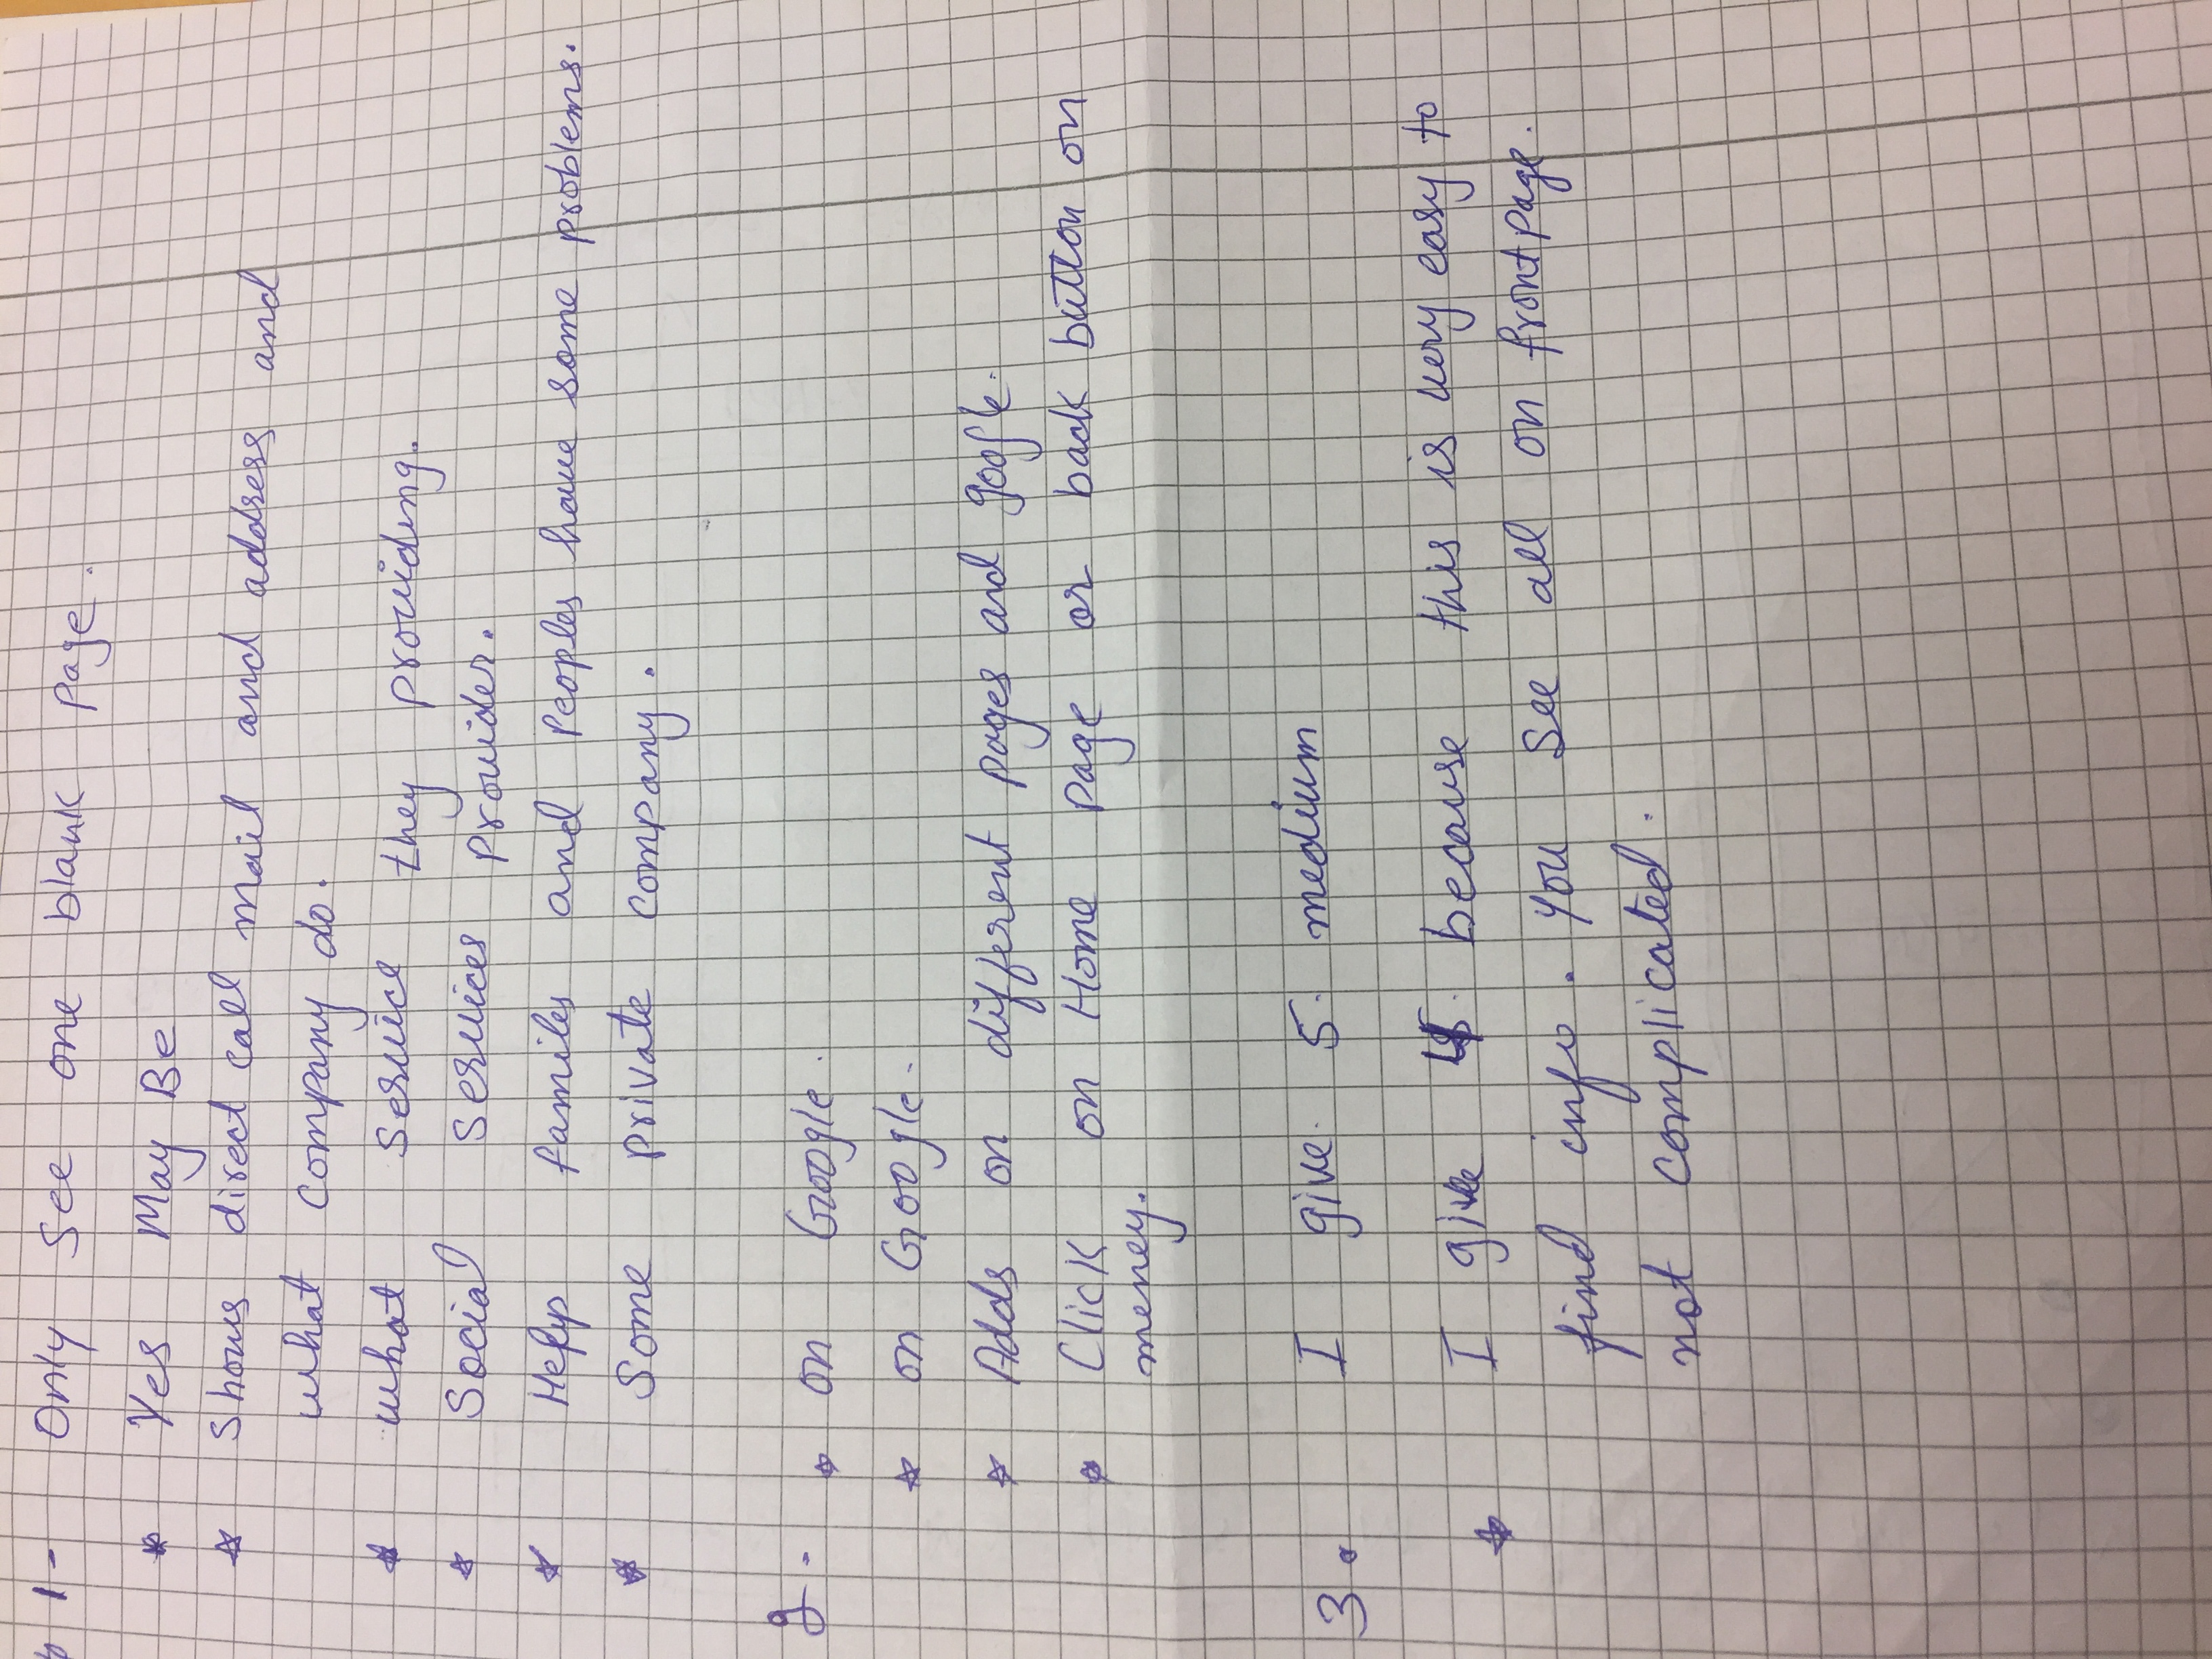 1- Only see one blank page.
* Yes May Be
* Shows direct call mail and address and
what company do.
* what service they providing.
* Social services provider.
* Help familes and Peoples have some problems.
* Some private company.
2. * on Google.
* on Google.
* Adds on different pages and google.
* Click on Home page or back button on
meney.
3. I give 5. medium
* I give 5. because this is very easy to
find info. you see all on frontpage.
not complicated.